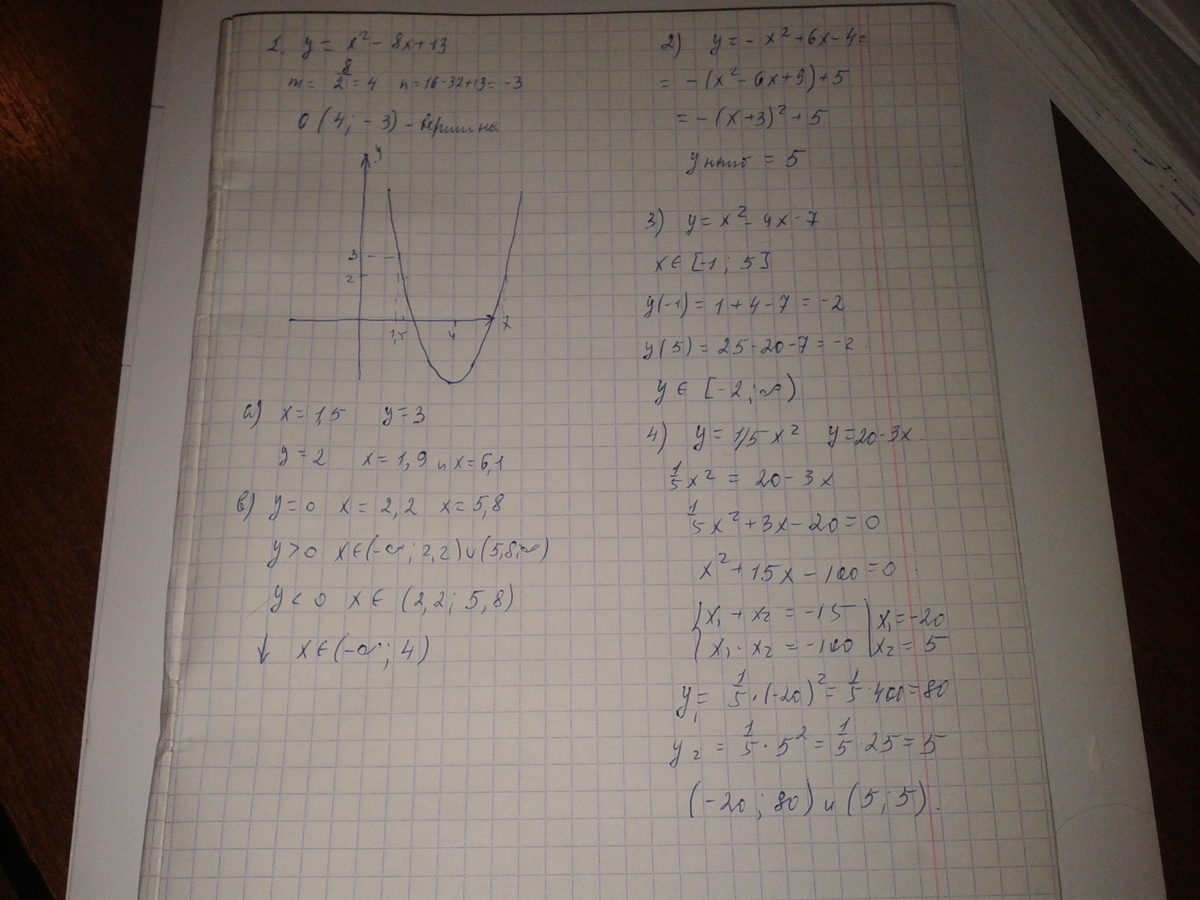 1. y = x² - 8x + 13
m = 8/2 = 4 n = 16 - 32 + 13 = -3
O (4; -3) - вершина
y
3
2
1,5
4
x
а) x = 1,5 y = 3
y = 2 x = 1,9 и x = 6,1
в) y = 0 x = 2,2 x = 5,8
y > 0 x ∈ (-∞; 2,2) ∪ (5,8; ∞)
y < 0 x ∈ (2,2; 5,8)
↓ x ∈ (-∞; 4)
2) y = - x² + 6x - 4 =
= - (x² - 6x + 9) + 5
= - (x + 3)² + 5
y наиб = 5
3) y = x² - 4x - 7
x ∈ [-1; 5]
y(-1) = 1 + 4 - 7 = -2
y(5) = 25 - 20 - 7 = -2
y ∈ [-2; ∞)
4) y = 1/5 x² y = 20 - 3x.
1/5 x² = 20 - 3x
1/5 x² + 3x - 20 = 0
x² + 15x - 100 = 0.
{ x₁ + x₂ = -15 | x₁ = -20
{ x₁ · x₂ = -100 | x₂ = 5
y₁ = 1/5 · (-20)² = 1/5 · 400 = 80
y₂ = 1/5 · 5² = 1/5 · 25 = 5
(-20; 80) и (5; 5).